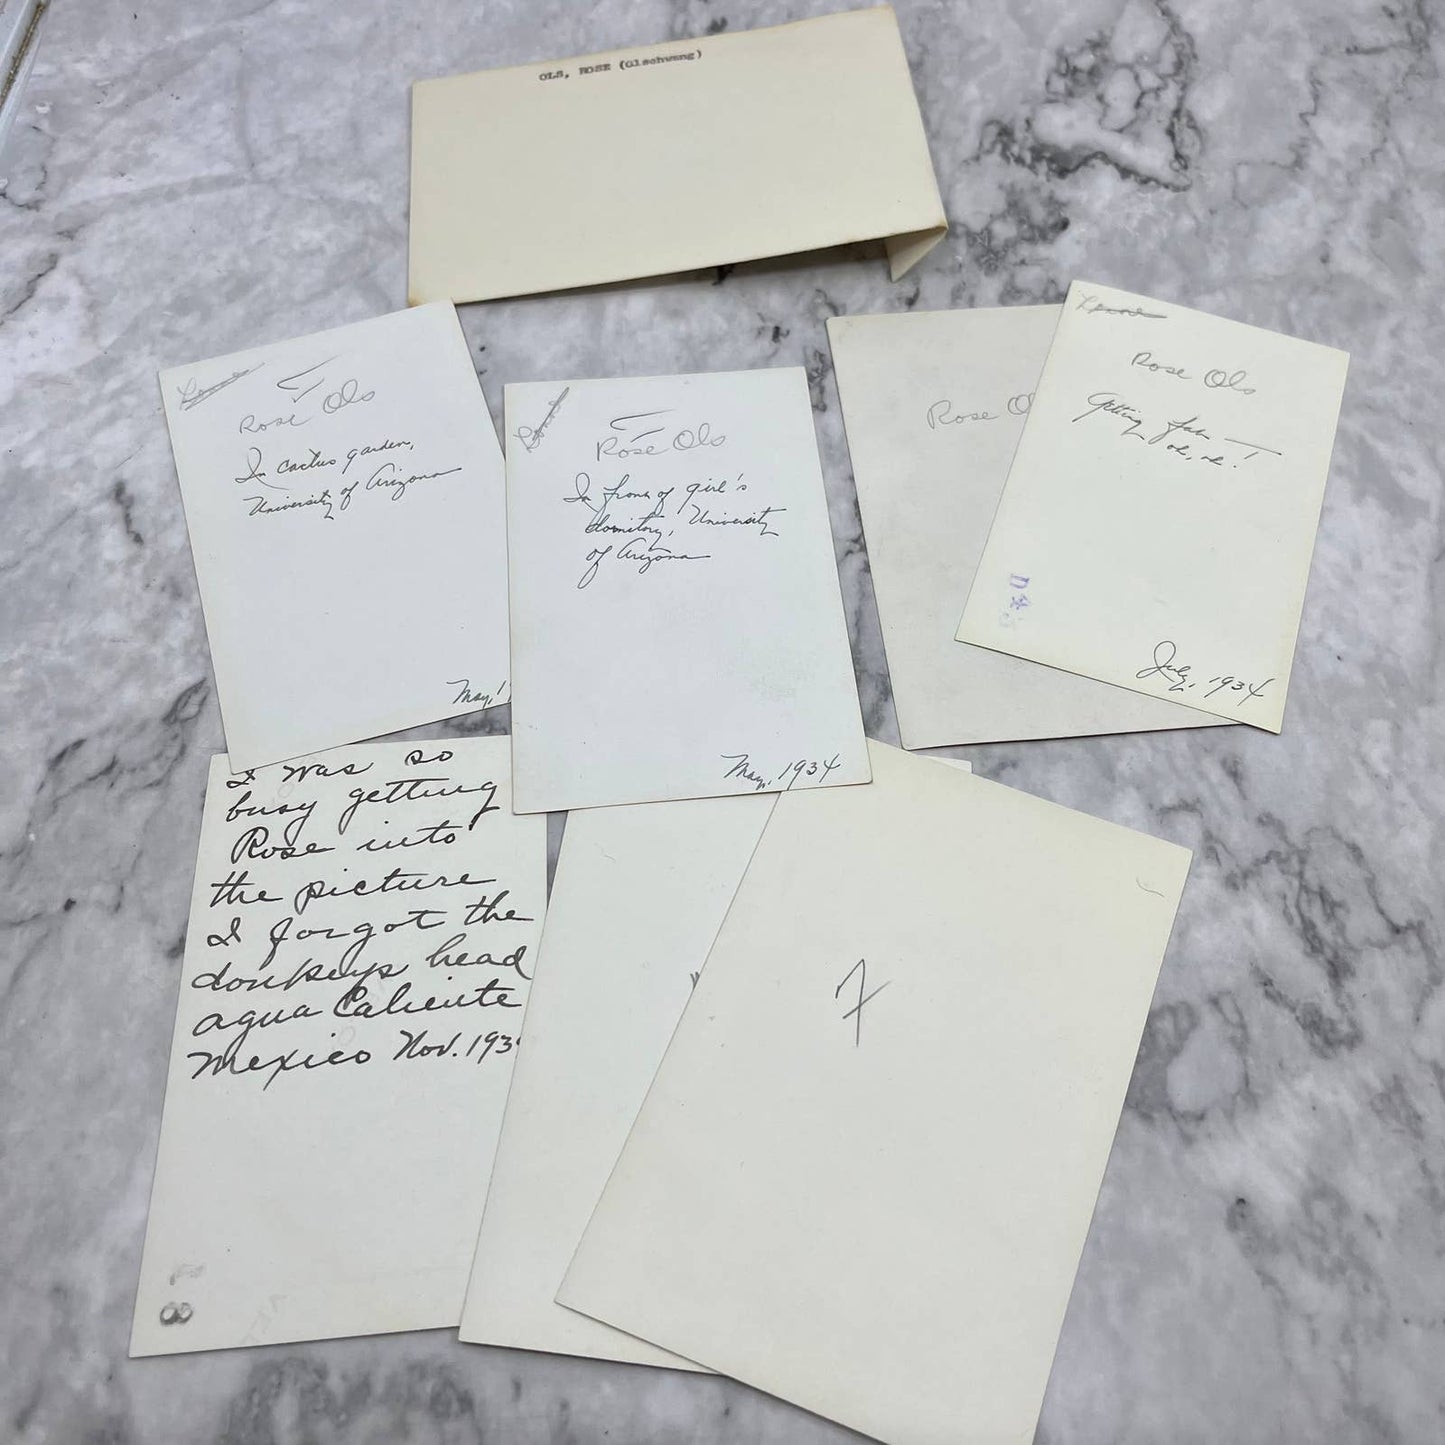 OLS, ROSE (Olschwang)
Rose Ols
In cactus garden,
University of Arizona
May, 1
Rose Ols
In front of girl's
dormitory, University
of Arizona
May, 1934
Rose O
Rose Ols
Getting fat
oh, oh!
July, 1934
I was so
busy getting
Rose into
the picture
I forgot the
donkeys head
agua Caliente
Mexico Nov. 193
7